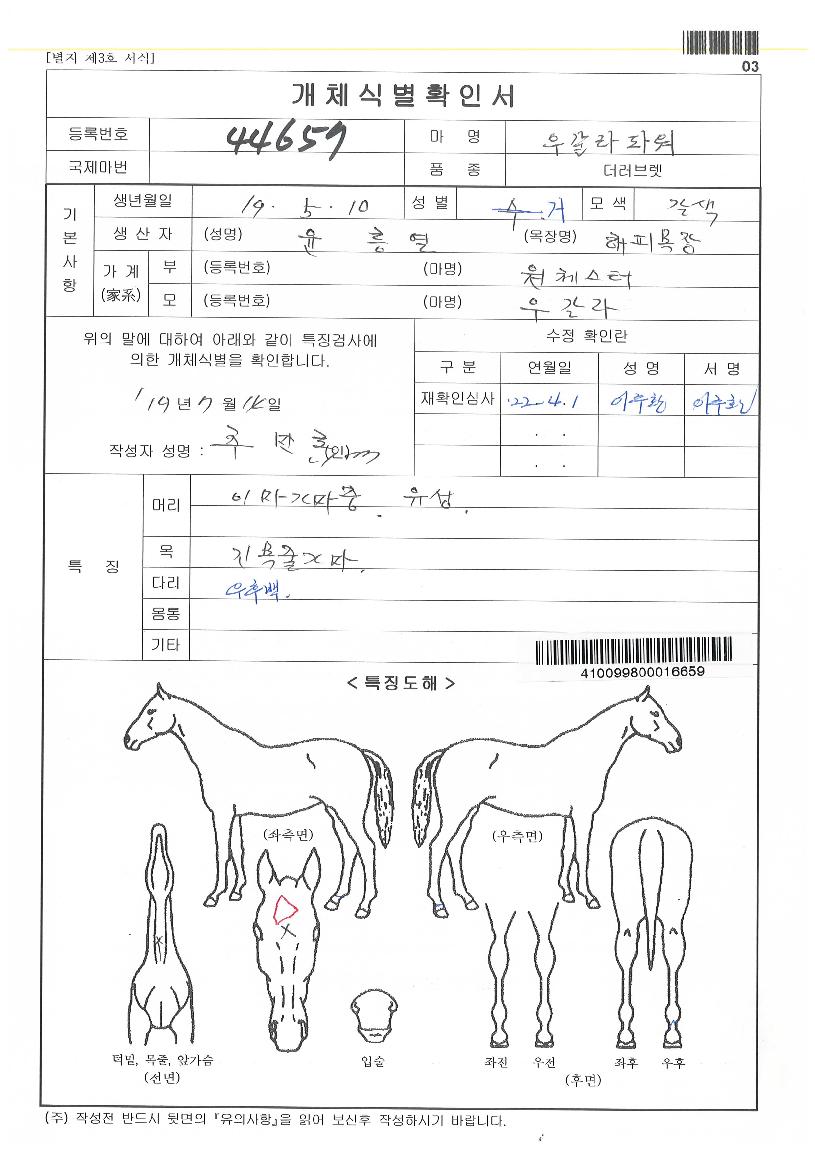 [별지 제3호 서식]
03
개체식별확인서
등록번호 44659 마 명 우갈라파워
국제마번 품 종 더러브렛
기본사항
생년월일 19. 5. 10 성 별 수 거 모 색 갈색
생 산 자 (성명) 윤 흥 열 (목장명) 해피목장
가 계 (家系) 부 (등록번호) (마명) 원체스터
모 (등록번호) (마명) 우갈라
위의 말에 대하여 아래와 같이 특징검사에
의한 개체식별을 확인합니다.
'19년 7월 14일
작성자 성명 : (인)
수정 확인란
구 분 연월일 성 명 서 명
재확인심사 '22. 4. 1
. .
. .
특 징
머리 이마가마중. 유성.
목 기목줄가마.
다리 우후백.
몸통
기타
410099800016659
< 특징도해 >
(좌측면) (우측면)
턱밑, 목줄, 앞가슴
(전면)
입술
좌전 우전 좌후 우후
(후면)
(주) 작성전 반드시 뒷면의 『유의사항』을 읽어 보신후 작성하시기 바랍니다.